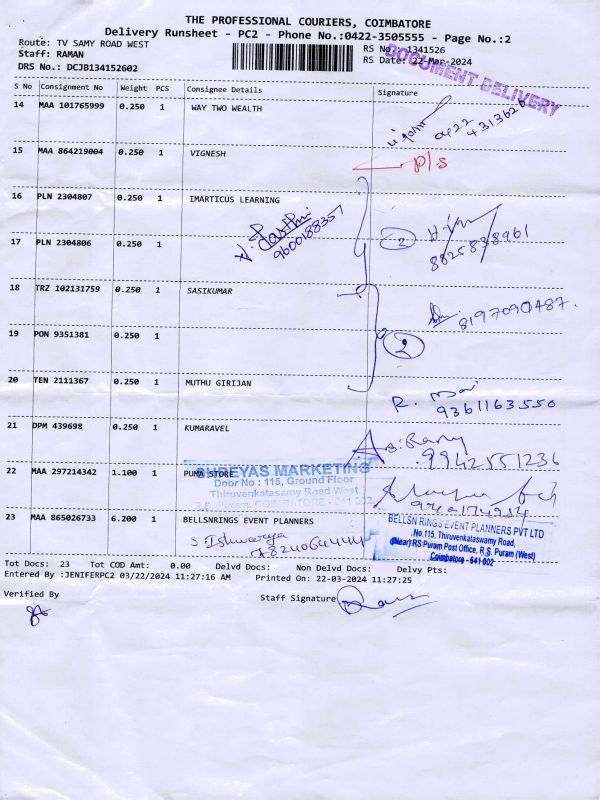 THE PROFESSIONAL COURIERS, COIMBATORE
Delivery Runsheet - PC2 - Phone No.:0422-3505555 - Page No.:2
Route: TV SAMY ROAD WEST
Staff: RAMAN
DRS No.: DCJB134152602
RS No.: 1341526
RS Date: 22-Mar-2024
DOCUMENT DELIVERY
S No Consignment No Weight PCS Consignee Details Signature
14 MAA 101765999 0.250 1 WAY TWO WEALTH
0422
4313626
15 MAA 864219004 0.250 1 VIGNESH
P/s
16 PLN 2304807 0.250 1 IMARTICUS LEARNING
9600188357
17 PLN 2304806 0.250 1
2
8825838961
18 TRZ 102131759 0.250 1 SASIKUMAR
8197090487.
19 PON 9351381 0.250 1
2
20 TEN 2111367 0.250 1 MUTHU GIRIJAN
R.
9361163550
21 DPM 439698 0.250 1 KUMARAVEL
9942551236
22 MAA 297214342 1.100 1 PUMA STORE
SHREYAS MARKETING
Door No : 115, Ground Floor
Thiruvenkatasamy Road West
23 MAA 865026733 6.200 1 BELLSNRINGS EVENT PLANNERS
S Ishwarya
BELLSN RINGS EVENT PLANNERS PVT LTD
No.115, Thiruvenkataswamy Road,
(Near) RS Puram Post Office, R.S. Puram (West)
Coimbatore - 641 002
Tot Docs: 23 Tot COD Amt: 0.00 Delvd Docs: Non Delvd Docs: Delvy Pts:
Entered By :JENIFERPC2 03/22/2024 11:27:16 AM Printed On: 22-03-2024 11:27:25
Verified By
Staff Signature